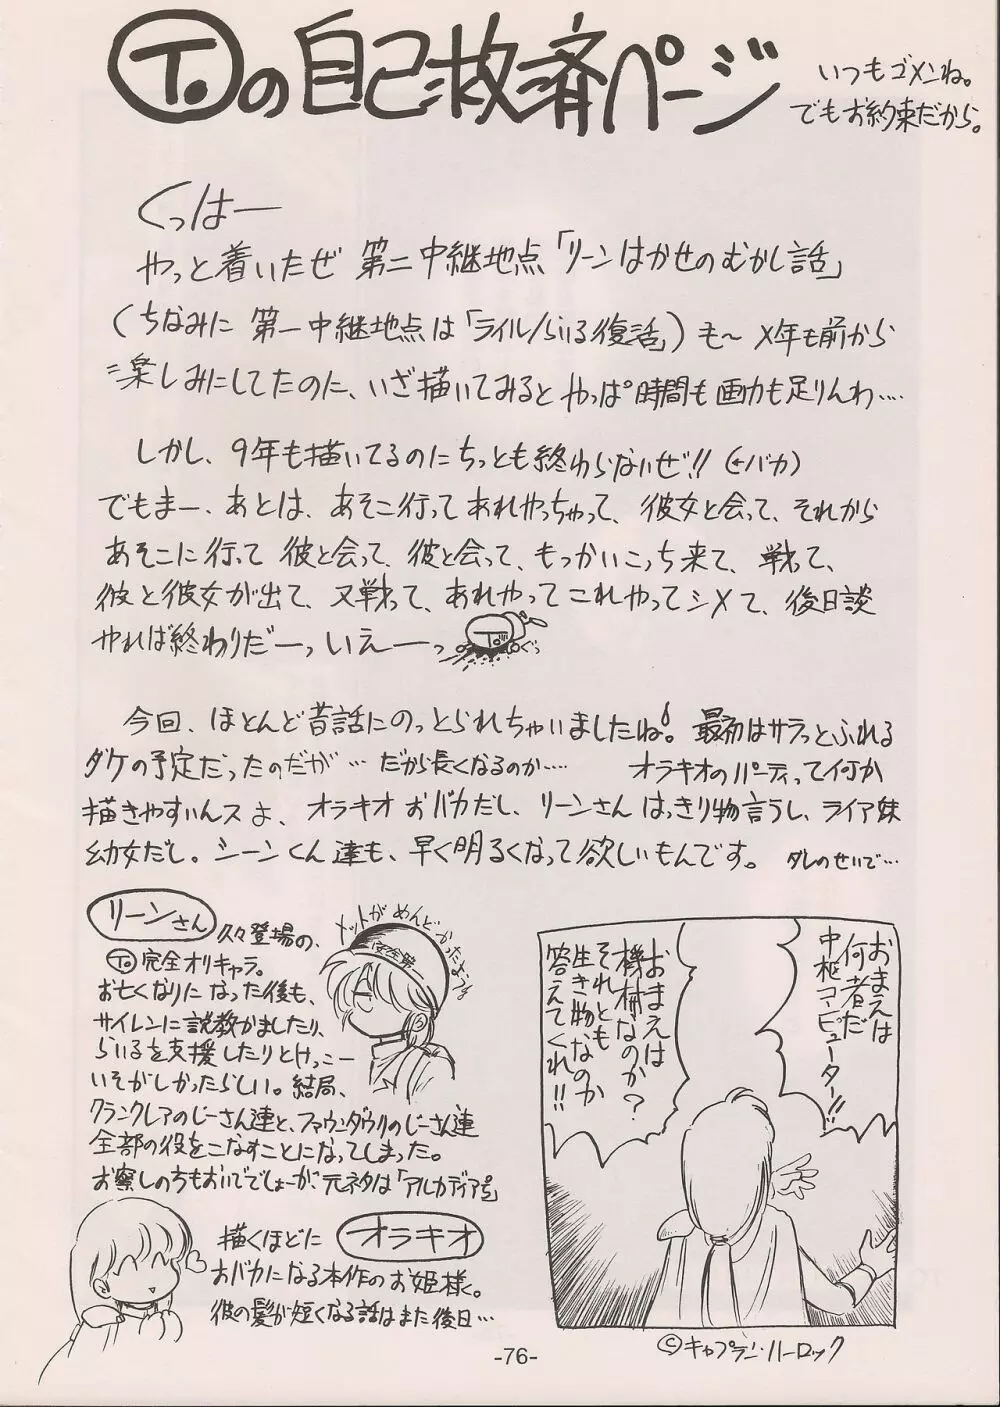 T.の自己救済ページ
いつもゴメンね。
でもお約束だから。
くっはー
やっと着いたぜ 第二中継地点「リーンはかせのむかし話」
(ちなみに 第一中継地点は「ライル/らいる復活」)も〜 メ年も前から
楽しみにしてたのに、いざ描いてみると やっぱ時間も画力も足りんわ‥‥
しかし、9年も描いてるのにちっとも終わらないぜ!!(←バカ)
でもまー、あとは、あそこ行ってあれやっちゃって、彼女と会って、それから
あそこに行って 彼と会って、彼と会って、もっかいこっち来て、戦って、
彼と彼女が出て、又戦って、あれやってこれやってシメて、後日談
やれば終わりだーっ いえーーっ
T.
ぐぅ
今回、ほとんど昔話にのっとられちゃいましたね。最初はサラっとふれる
ダケの予定だったのだが… だから長くなるのか‥‥ オラキオのパーティって何か
描きやすいんスよ、オラキオ おバカだし、リーンさん はっきり物言うし、ライア妹
幼女だし。シーンくん達も、早く明るくなって欲しいもんです。 ダレのせいで…
リーンさん
久々登場の、
T.完全オリキャラ。
お亡くなりになった後も、
サイレンに説教かましたり、
らいるを支援したりとけっこー
いそがしかったらしい。結局、
クランクレアのじーさん達と、ファウンダウリのじーさん達
全部の役をこなすことになってしまった。
お察しの方もおいででしょーが、元ネタは「アルカディア号」
メットがめんどかったようす
安全第一
描くほどに オラキオ
おバカになる本作のお姫様。
彼の髪が短くなる話はまた後日…
おまえは
何者だ
中枢コンピューター!!
おまえは
機械なのか?
それとも
生き物なのか
答えてくれ!!
©キャプテン・ハーロック
-76-